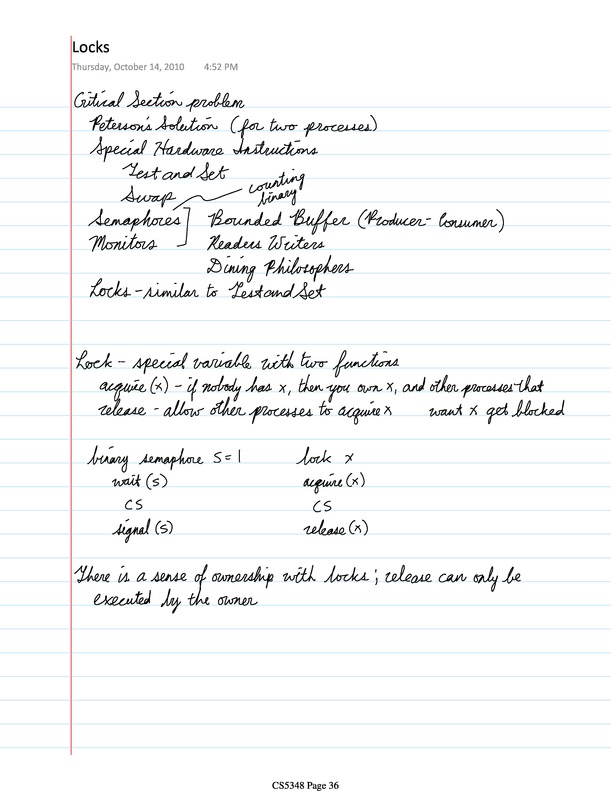 Locks
Thursday, October 14, 2010 4:52 PM
Critical Section problem
Peterson's Solution (for two processes)
Special Hardware Instructions
Test and Set
Swap
counting
binary
Semaphores] Bounded Buffer (Producer-Consumer)
Monitors Readers Writers
Dining Philosophers
Locks - similar to Test and Set
Lock - special variable with two functions
acquire (x) - if nobody has x, then you own x, and other processes that
release - allow other processes to acquire x want x get blocked
binary semaphore S = 1 lock x
wait (s) acquire (x)
CS CS
signal (s) release (x)
There is a sense of ownership with locks; release can only be
executed by the owner
CS5348 Page 36